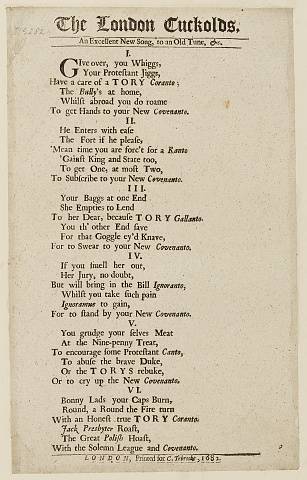 The London Cuckolds.
An Excellent New Song, to an Old Tune, &c.
I.
GIve over, you Whiggs,
Your Protestant Jiggs,
Have a care of a TORY Coranto;
The Bully's at home,
Whilst abroad you do roame
To get Hands to your New Covenanto.
II.
He Enters with ease
The Fort if he please,
'Mean time you are forc't for a Ranto
'Gainst King and State too,
To get One, at most Two,
To Subscribe to your New Covenanto.
III.
Your Baggs at one End
She Empties to Lend
To her Dear, because TORY Gallanto.
You th' other End save
For that Goggle ey'd Knave,
For to Swear to your New Covenanto.
IV.
If you smell her out,
Her Jury, no doubt,
But will bring in the Bill Ignoranto,
Whilst you take such pain
Ignoramus to gain,
For to stand by your New Covenanto.
V.
You grudge your selves Meat
At the Nine-penny Treat,
To encourage some Protestant Canto,
To abuse the brave Duke,
Or the TORYS rebuke,
Or to cry up the New Covenanto.
VI.
Bonny Lads your Caps Burn,
Round, a Round the Fire turn
With an Honest true TORY Coranto.
Jack Presbyter Roast,
The Great Polish Hoast,
With the Solemn League and Covenanto.
LONDON, Printed for C. Tebroke, 1682.